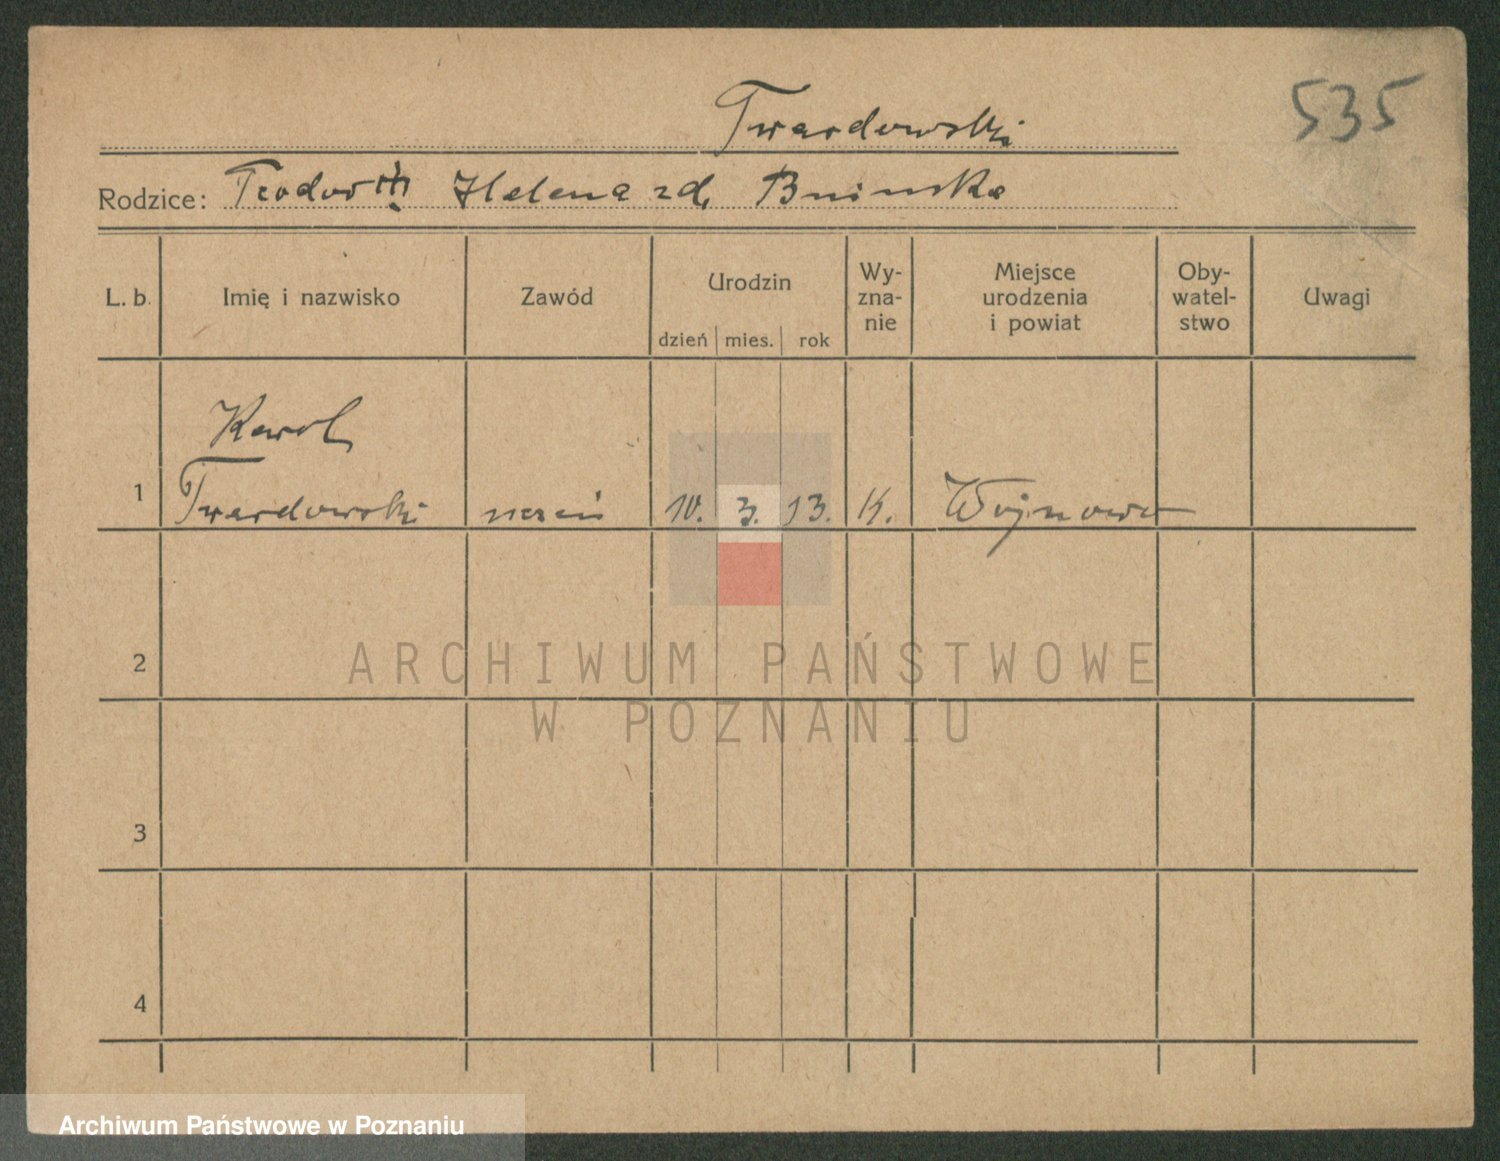 535
Twardowski
Rodzice: Teodor Helena zd. Bnińska
L. b. Imię i nazwisko Zawód Urodzin dzień mies. rok Wy-
zna-
nie Miejsce
urodzenia
i powiat Oby-
watel-
stwo Uwagi
Karol
1 Twardowski uczeń 10. 3. 13. K. Wojnowo
2
ARCHIWUM PAŃSTWOWE
W POZNANIU
3
4
Archiwum Państwowe w Poznaniu